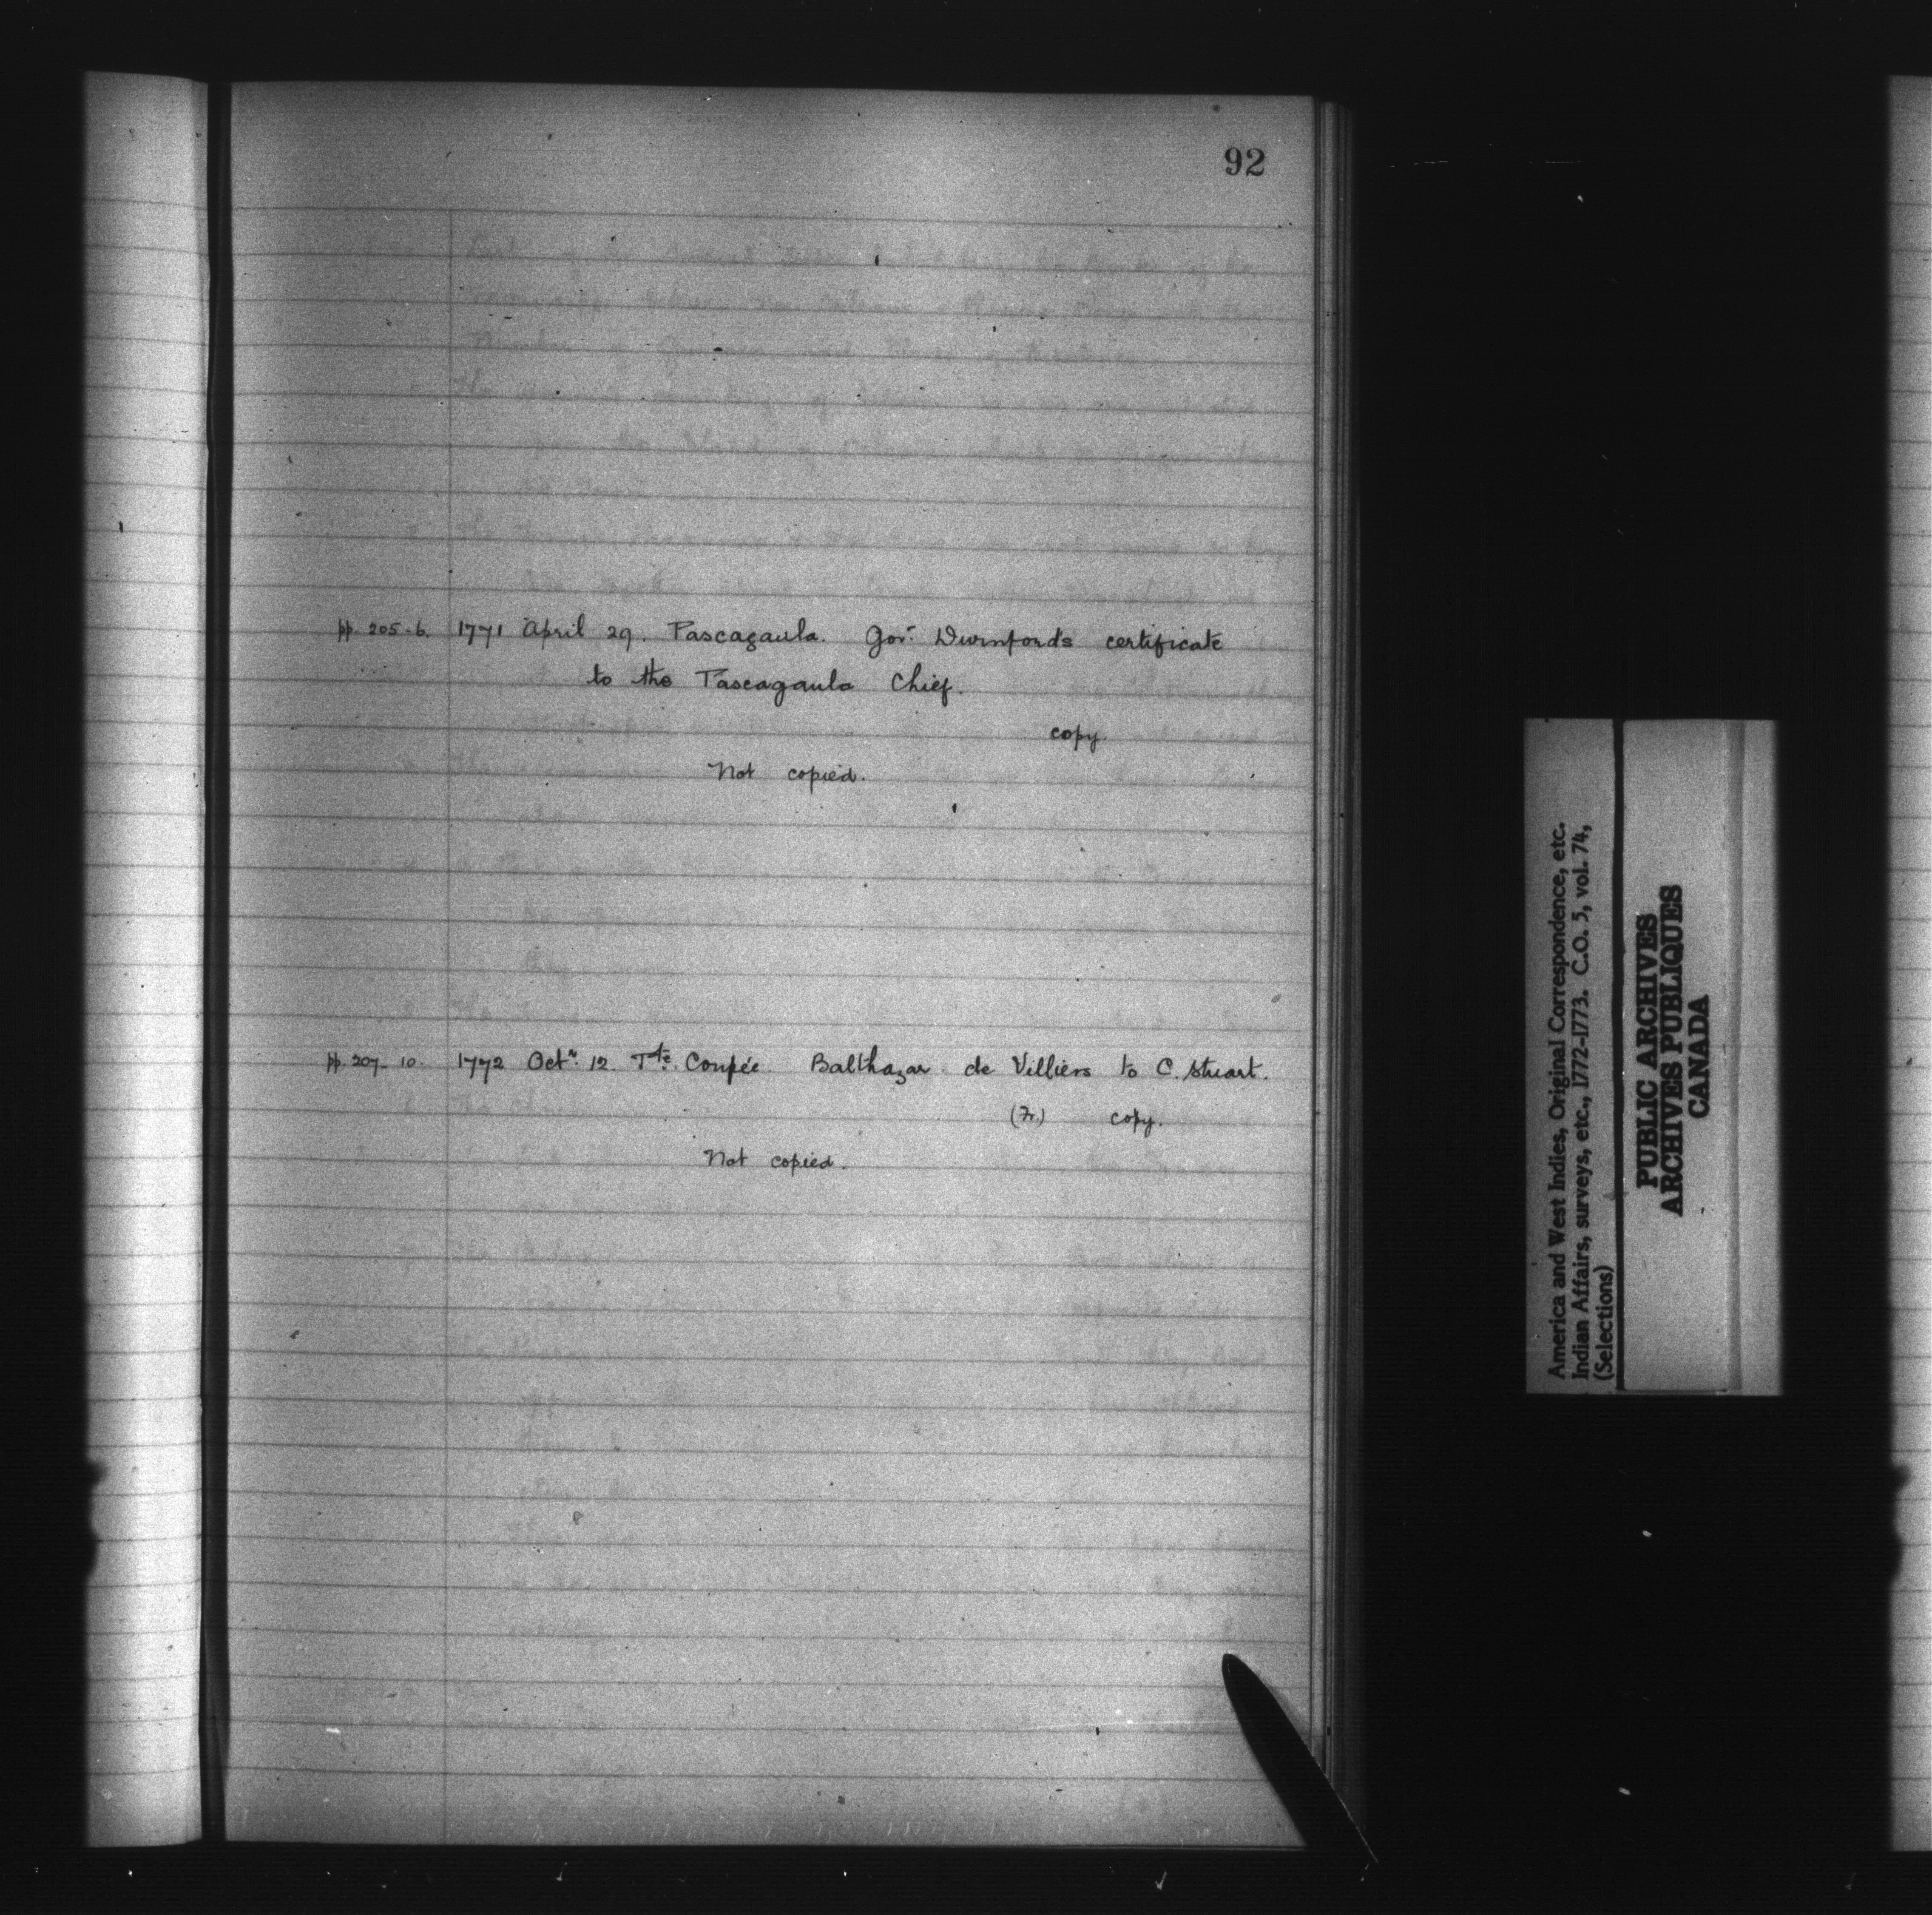 92
pp. 205-6. 1771 April 29. Pascagaula. Govr. Durnford's certificate
to the Pascagaula Chief.
copy.
Not copied.
pp. 207-10. 1772 Octr. 12. Tte. Coupée. Balthazar de Villiers to C. Stuart.
(Fr.) copy.
Not copied.
America and West Indies, Original Correspondence, etc.
Indian Affairs, surveys, etc., 1772-1773. C.O. 5, vol. 74,
(Selections)
PUBLIC ARCHIVES
ARCHIVES PUBLIQUES
CANADA